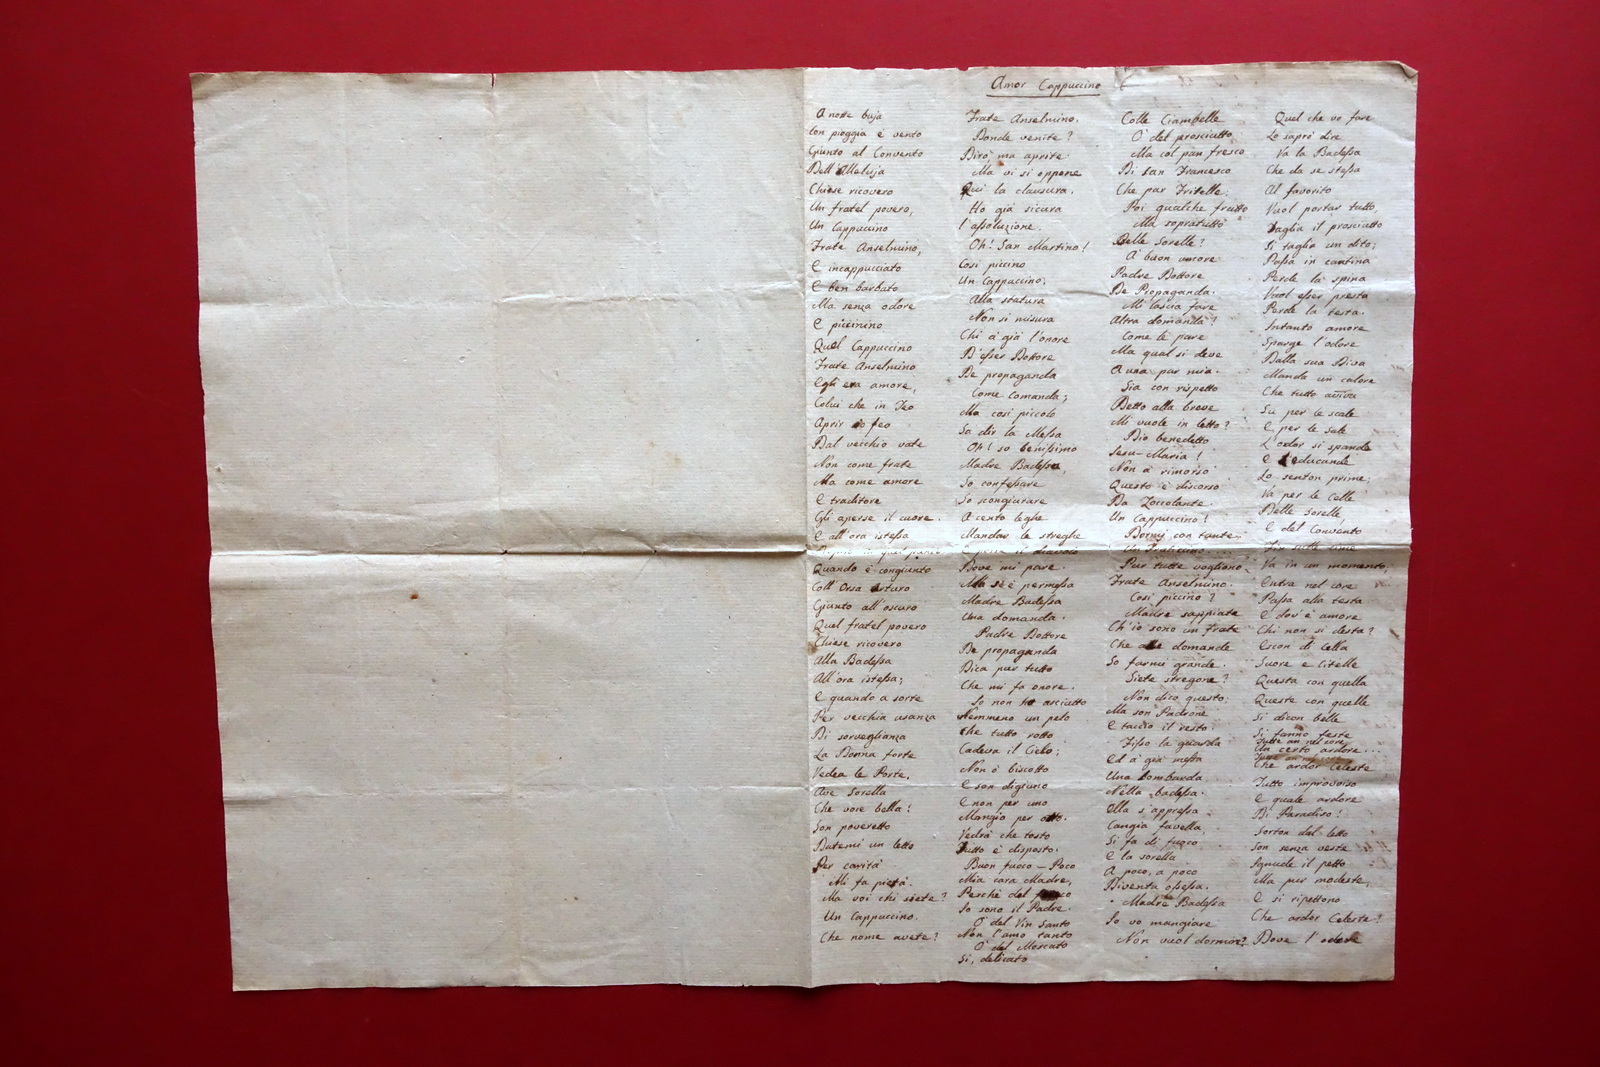 Amor Cappuccino
A notte buja
Con pioggia e vento
Giunto al Convento
Dell'Alleluja
Chiese ricovero
Un fratel povero,
Un Cappuccino
Frate Anselmino,
E incappucciato
E ben barbato
Ma senza odore
E piccinino
Quel Cappuccino
Frate Anselmino
Egli era amore,
Colui che in Teo
Aprir feo
Dal vecchio vate
Non come frate
Ma come amore
E traditore
Gli aperse il cuore.
E all'ora istessa
Quando è congiunto
Coll'Orsa Arturo
Giunto all'oscuro
Quel fratel povero
Chiese ricovero
Alla Badessa
All'ora istessa;
E quando a sorte
Per vecchia usanza
Di sorveglianza
La Donna forte
Vedea le Porte,
Ave Sorella
Che voce bella!
Son poveretto
Datemi un letto
Per carità
Mi fa pietà.
Ma voi chi siete?
Un Cappuccino.
Che nome avete?
Frate Anselmino.
Donde venite?
Dirò, ma aprite
Ma vi si oppone
Qui la clausura.
Ho già sicura
l'assoluzione.
Oh! San Martino!
Così piccino
Un Cappuccino;
Alla statura
Non si misura
Chi à già l'onore
D'esser Dottore
De propaganda
Come Comanda;
Ma così piccolo
Sa dir la Messa
Oh! so benissimo
Madre Badessa,
So confessare
So scongiurare
A cento leghe
Mandar le streghe
Dove mi pare.
Ma se è permessa
Madre Badessa
Una domanda.
Padre Dottore
De propaganda
Dica pur tutto
Che mi fa onore.
Io non ho asciutto
Nemmeno un pelo
Che tutto rotto
Cadeva il Cielo;
Non ò biscotto
E son digiuno
E non per uno
Mangio per otto.
Vedrà che tosto
Tutto è disposto.
Buon fuoco – Poco
Mia cara Madre,
Perchè del
Io sono il Padre.
O' del Vin Santo
Non l'amo tanto
O' del Moscato
Si, delicato
Colle Ciambelle
O' del prosciutto
Ma col pan fresco
Di San Francesco
Che par Fritelle.
Poi qualche frutto
Ma sopratutto
Belle Sorelle?
A buon amore
Padre Dottore
De Propaganda.
Mi lascia fare
Altra domanda?
Come le pare
Ma qual si deve
A una par mia.
Sia con rispetto
Detto alla breve
Mi vuole in letto?
Dio benedetto
Jesu-Maria!
Non à rimorso
Questo è discorso
Da Zoccolante
Un Cappuccino!
Dormir con tante
Pur tutte vogliono
Frate Anselmino.
Così piccino?
Madre sappiate
Ch'io sono un frate
Che alle domande
So farmi grande.
Siete stregone?
Non dico questo;
Ma son Padrone
E taccio il resto.
Fisso la guarda
Ed à già messa
Una bombarda
Nella badessa.
Ella s'appressa
Cangia favella
Si fa di fuoco
E la sorella
A poco, a poco
Diventa ossessa.
Madre Badessa
Io vo mangiare
Non vuol dormire?
Quel che vo fare
Lo saprò dire
Va la Badessa
Che da se stessa
Al favorito
Vuol portar tutto,
Taglia il prosciutto
Si taglia un dito;
Passa in cantina
Perde la spina
Vuol esser presta
Perde la testa.
Intanto amore
Sparge l'odore
Dalla sua Diva
Manda un calore
Che tutto aviva
Su per le scale
E per le sale
L'odor si spande
E l'educande
Lo senton prime;
Va per le Celle
Delle Sorelle
E del Convento
Fin sulle cime
Va in un momento;
Entra nel core
Passa alla testa
E dov'è amore
Chi non si desta?
Escon di cella
Suore e Citelle
Questa con quella
Queste con quelle
Si dicon belle
Si fanno feste
Tutte an nel core
Un certo ardore...
Che ardor Celeste
Tutto improvviso
E quale ardore
Di Paradiso!
Sorton dal letto
Son senza veste
Ignude il petto
Ma pur modeste,
E si ripettono
Che ardor Celeste?
Dove l'odore